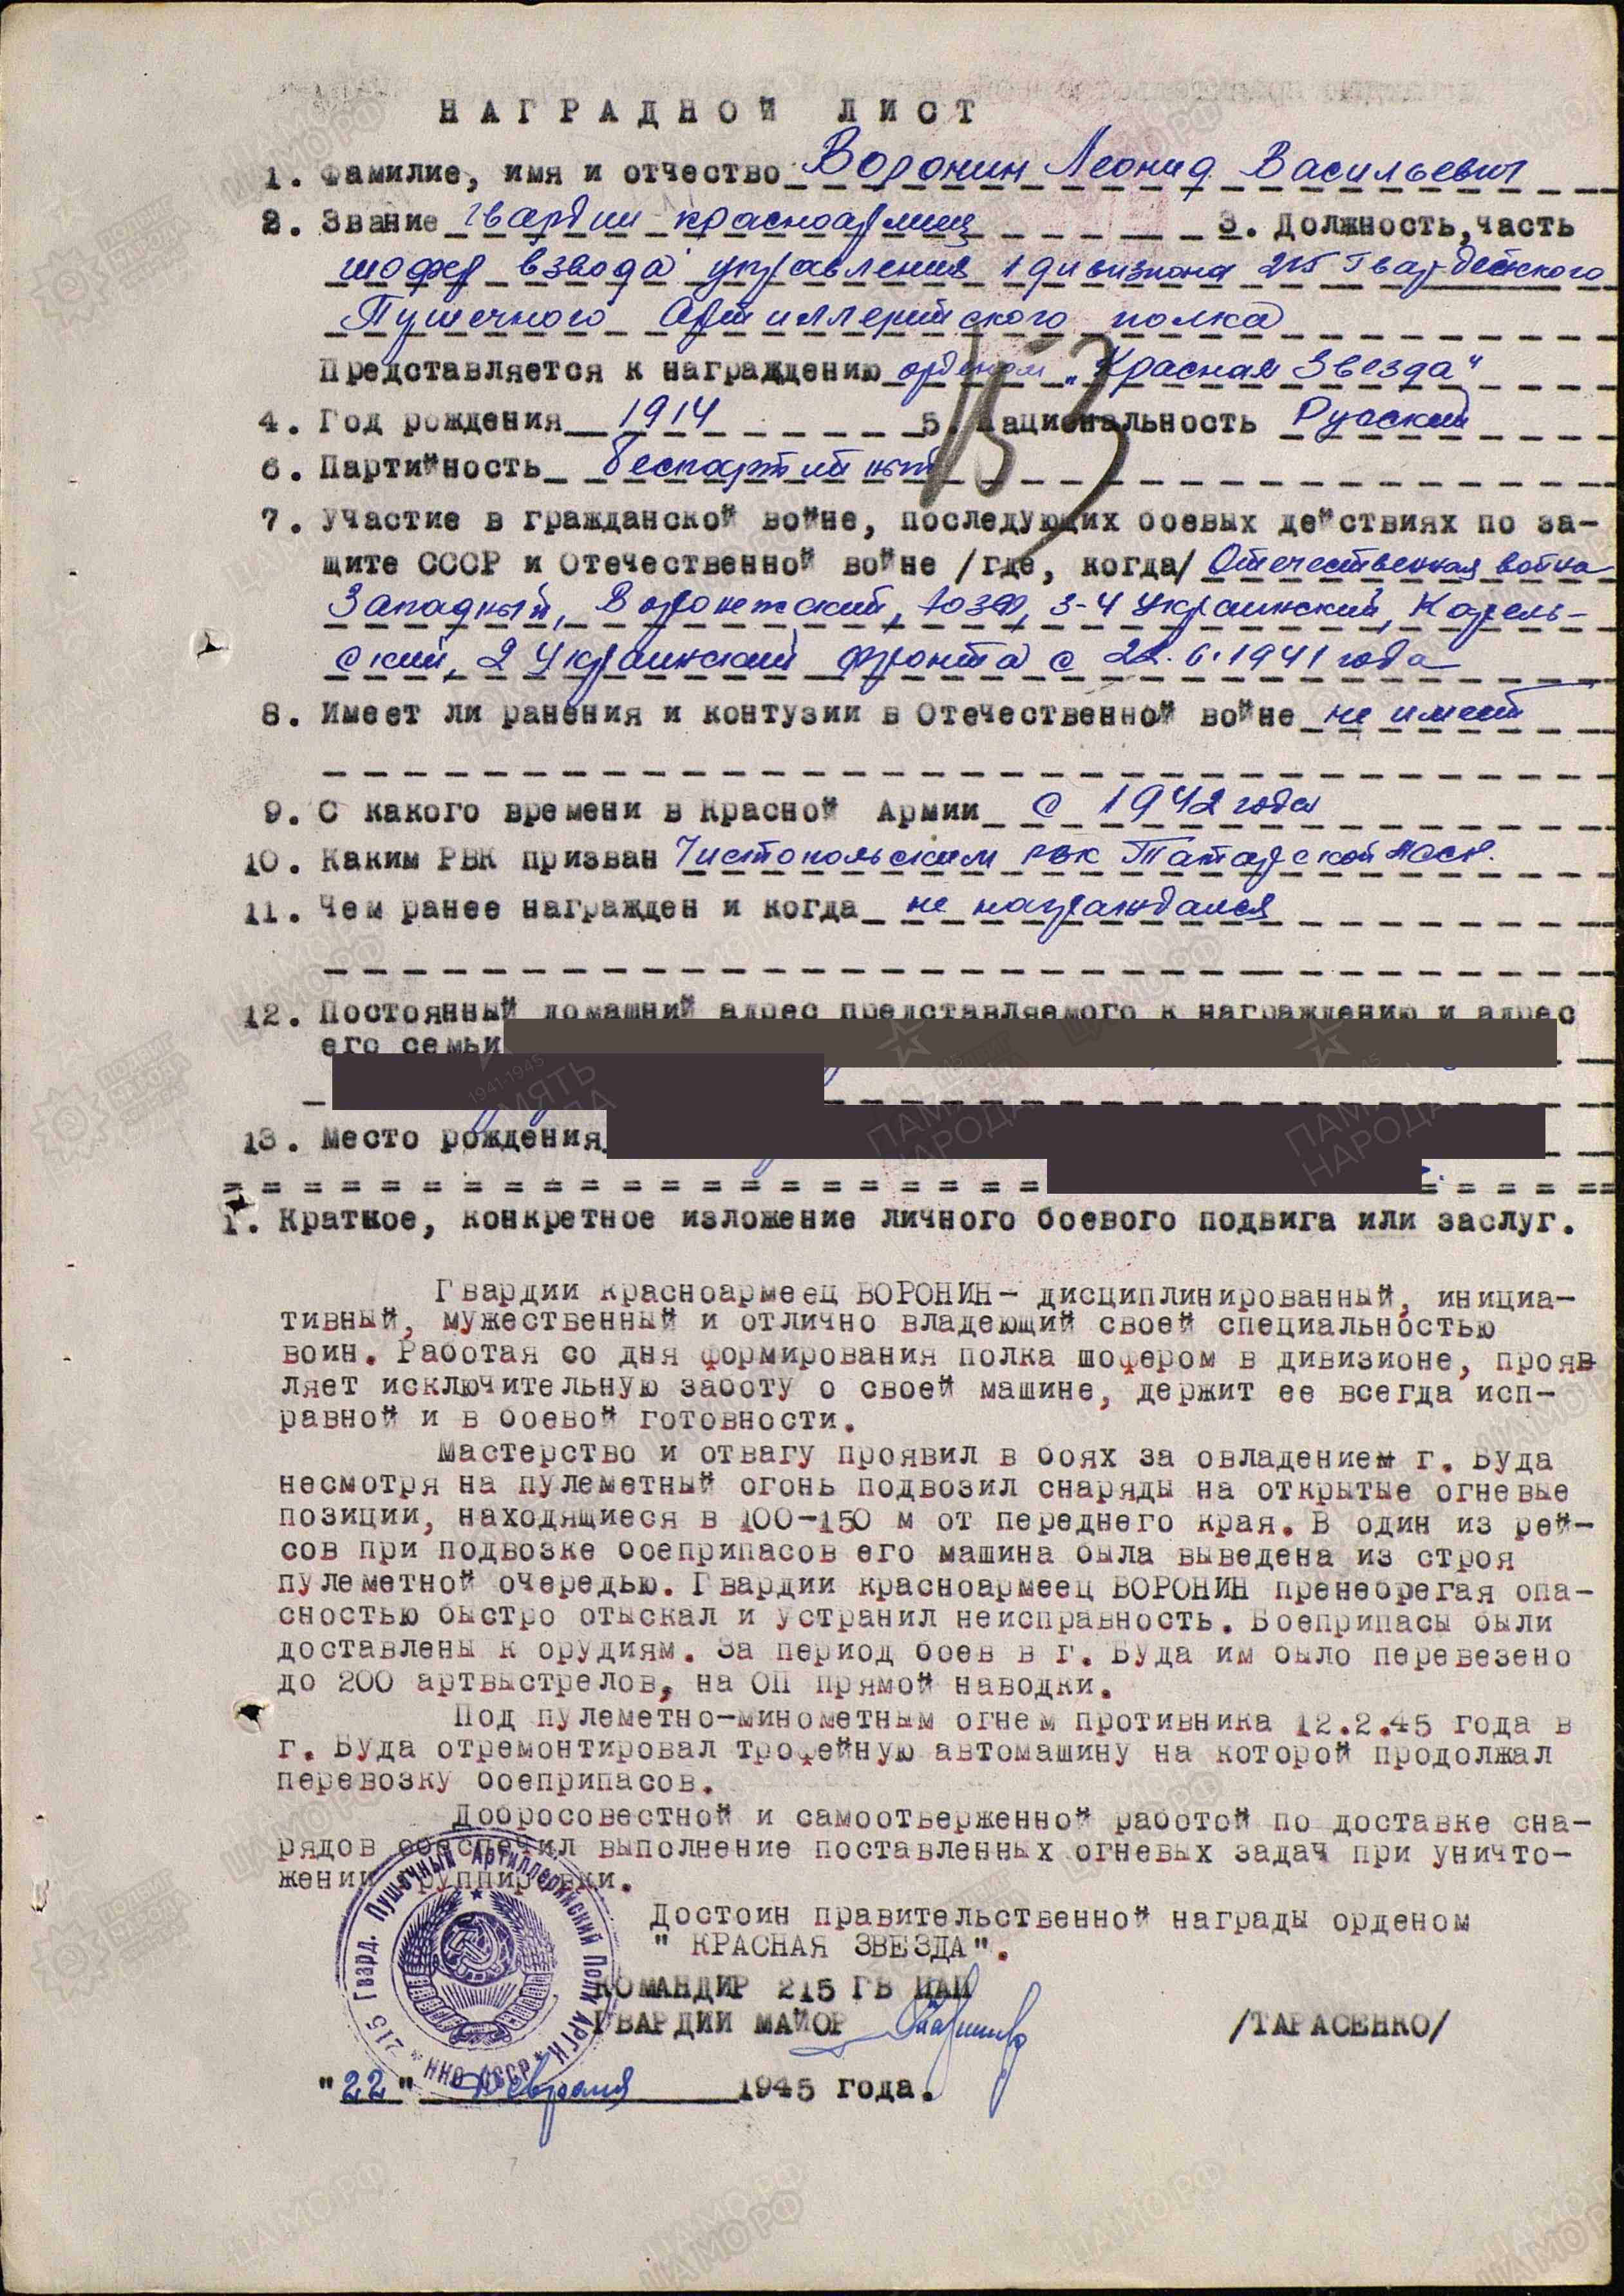 НАГРАДНОЙ ЛИСТ
1. Фамилие, имя и отчество Воронин Леонид Васильевич
2. Звание гвардии красноармеец 3. Должность, часть
шофер взвода управления 1 дивизиона 215 Гвардейского
Пушечного Артиллерийского полка
Представляется к награждению орденом „Красная Звезда"
4. Год рождения 1914 5. Национальность Русский
6. Партийность беспартийный
7. Участие в гражданской войне, последующих боевых действиях по за-
щите СССР и Отечественной войне /где, когда/ Отечественная война
Западный, Воронежский, ЮЗФ, 3-4 Украинский, Карель-
ский, 2 Украинский фронта с 22.6.1941 года
8. Имеет ли ранения и контузии в Отечественной войне не имеет
9. С какого времени в Красной Армии с 1942 года
10. Каким РВК призван Чистопольским РВК Татарской АССР.
11. Чем ранее награжден и когда не награждался
12. Постоянный домашний адрес представляемого к награждению и адрес
его семьи
13. Место рождения
1. Краткое, конкретное изложение личного боевого подвига или заслуг.
Гвардии красноармеец ВОРОНИН- дисциплинированный, инициа-
тивный, мужественный и отлично владеющий своей специальностью
воин. Работая со дня формирования полка шофером в дивизионе, прояв
ляет исключительную заботу о своей машине, держит ее всегда исп-
равной и в боевой готовности.
Мастерство и отвагу проявил в боях за овладением г. Буда
несмотря на пулеметный огонь подвозил снаряды на открытые огневые
позиции, находящиеся в 100-150 м от переднего края. В один из рей-
сов при подвозке боеприпасов его машина была выведена из строя
пулеметной очередью. Гвардии красноармеец ВОРОНИН пренебрегая опа-
сностью быстро отыскал и устранил неисправность. Боеприпасы были
доставлены к орудиям. За период боев в г. Буда им было перевезено
до 200 артвыстрелов, на ОП прямой наводки.
Под пулеметно-минометным огнем противника 12.2.45 года в
г. Буда отремонтировал трофейную автомашину на которой продолжал
перевозку боеприпасов.
Добросовестной и самоотверженной работой по доставке сна-
рядов обеспечил выполнение поставленных огневых задач при уничто-
жении группировки.
Достоин правительственной награды орденом
" КРАСНАЯ ЗВЕЗДА".
КОМАНДИР 215 ГВ ПАП
ГВАРДИИ МАЙОР /ТАРАСЕНКО/
"22" февраля 1945 года.
215 Гвард. Пушечный Артиллерийский Полк АРГК
* НКО СССР *
ЦАМО РФ
ПОДВИГ НАРОДА
1941-1945
ПАМЯТЬ НАРОДА